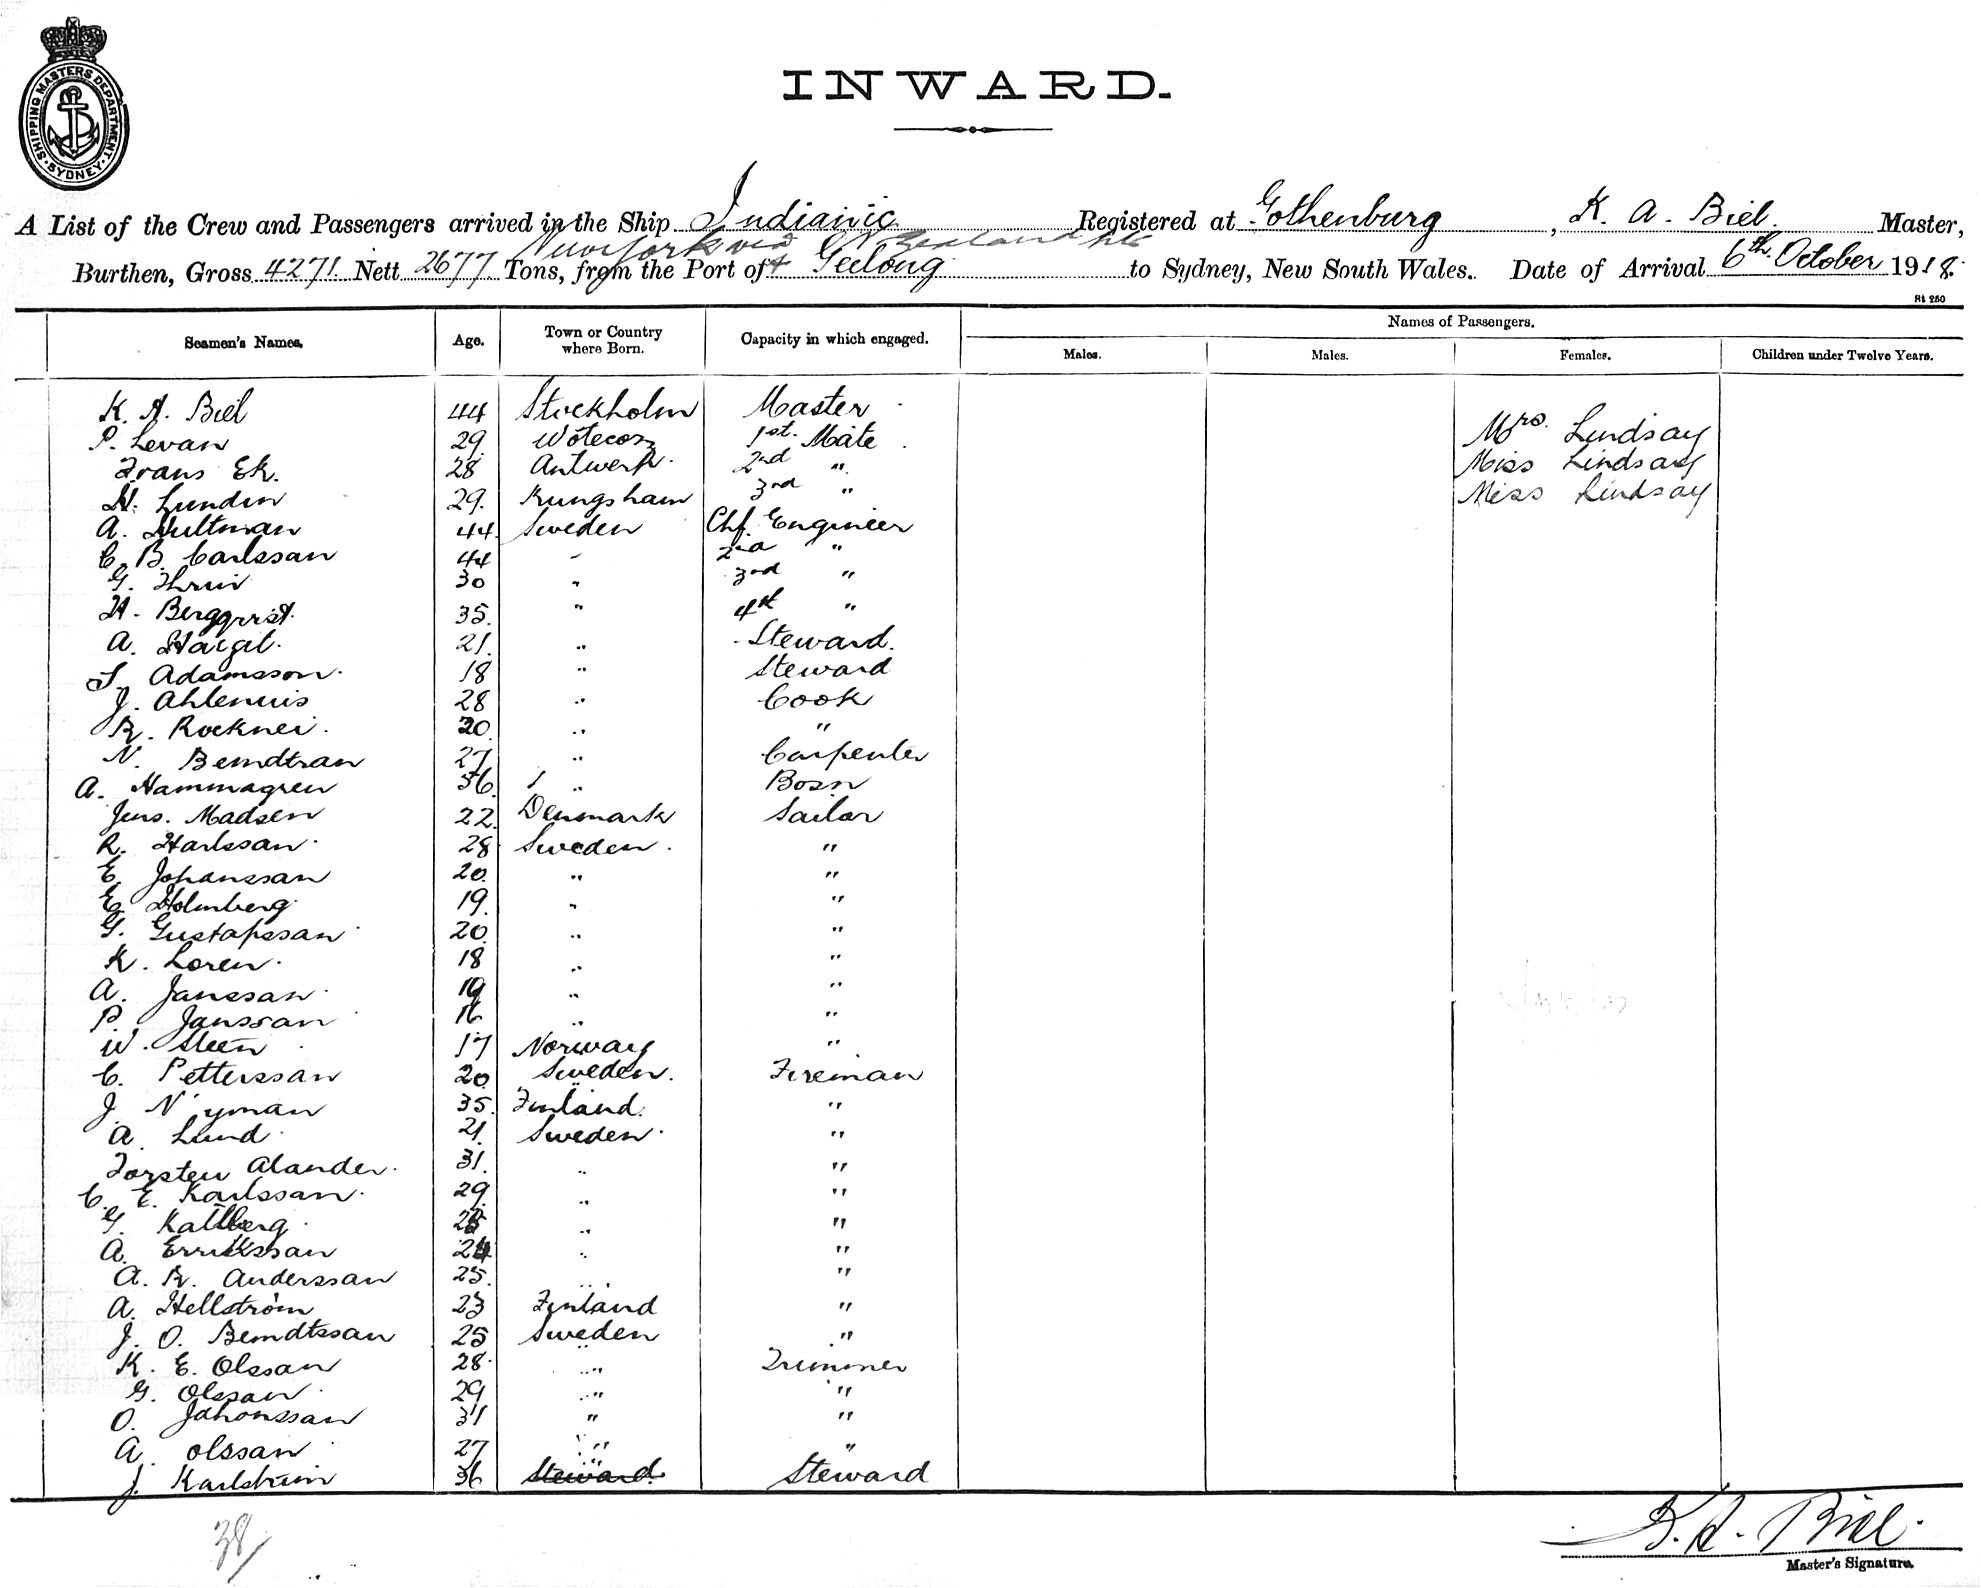 SHIPPING MASTERS DEPARTMENT
SYDNEY
INWARD.
A List of the Crew and Passengers arrived in the Ship Indianic Registered at Gothenburg, K. A. Biel. Master,
New York via N Zealand
Burthen, Gross 4271 Nett 2677 Tons, from the Port of & Geelong to Sydney, New South Wales. Date of Arrival 6th October 1918.
Rt 250
Seamen's Names. Age. Town or Country where Born. Capacity in which engaged. Names of Passengers.
Males. Males. Females. Children under Twelve Years.
K. A. Biel 44 Stockholm Master Mrs. Lindsay
P. Levan 29. 1st. Mate Miss Lindsay
Frans Ek. 28 Antwerp. 2nd " Miss Lindsay
H. Lundin 29. Kungsham 3rd "
A. Hultman 44. Sweden Chf. Engineer
C. B. Carlssan 44 " 2nd "
G. 30 " 3rd "
H. Bergqvist. 35. " 4th "
A. 21. " Steward.
S. Adamsson. 18 " Steward
J. Ahlenuis 28 " Cook
R. Rocknei. 20. " "
N. Berndtran 27 " Carpenter
A. Hammagren 36. " Bosn
Jens. Madsen 22. Denmark Sailor
R. Harlssan. 28 Sweden. "
E. Johanssan 20. " "
E. Holmberg. 19. " "
G. Gustafssan 20. " "
K. Loren. 18 " "
A. Janssan. 19 " "
P. Janssan 16 " "
W. Steen 17 Norway "
C. Petterssan 20. Sweden. Fireman
J. Nyman 35. Finland. "
A. Lund. 21. Sweden. "
Torsten Alander. 31. " "
C. E. Karlssan. 29. " "
G. Kallberg " "
A. Errikssan 24 " "
A. R. Anderssan 25. " "
A. Hellström 23 Finland "
J. O. Berndtssan 25 Sweden "
K. E. Olssan 28. " Trimmer
G. Olssan 29 " "
O. Johonssan 31 " "
A. olssan 27 " "
J. Karlstrüm 36 " Steward. Steward
38/
K. A. Biel.
Master's Signature.